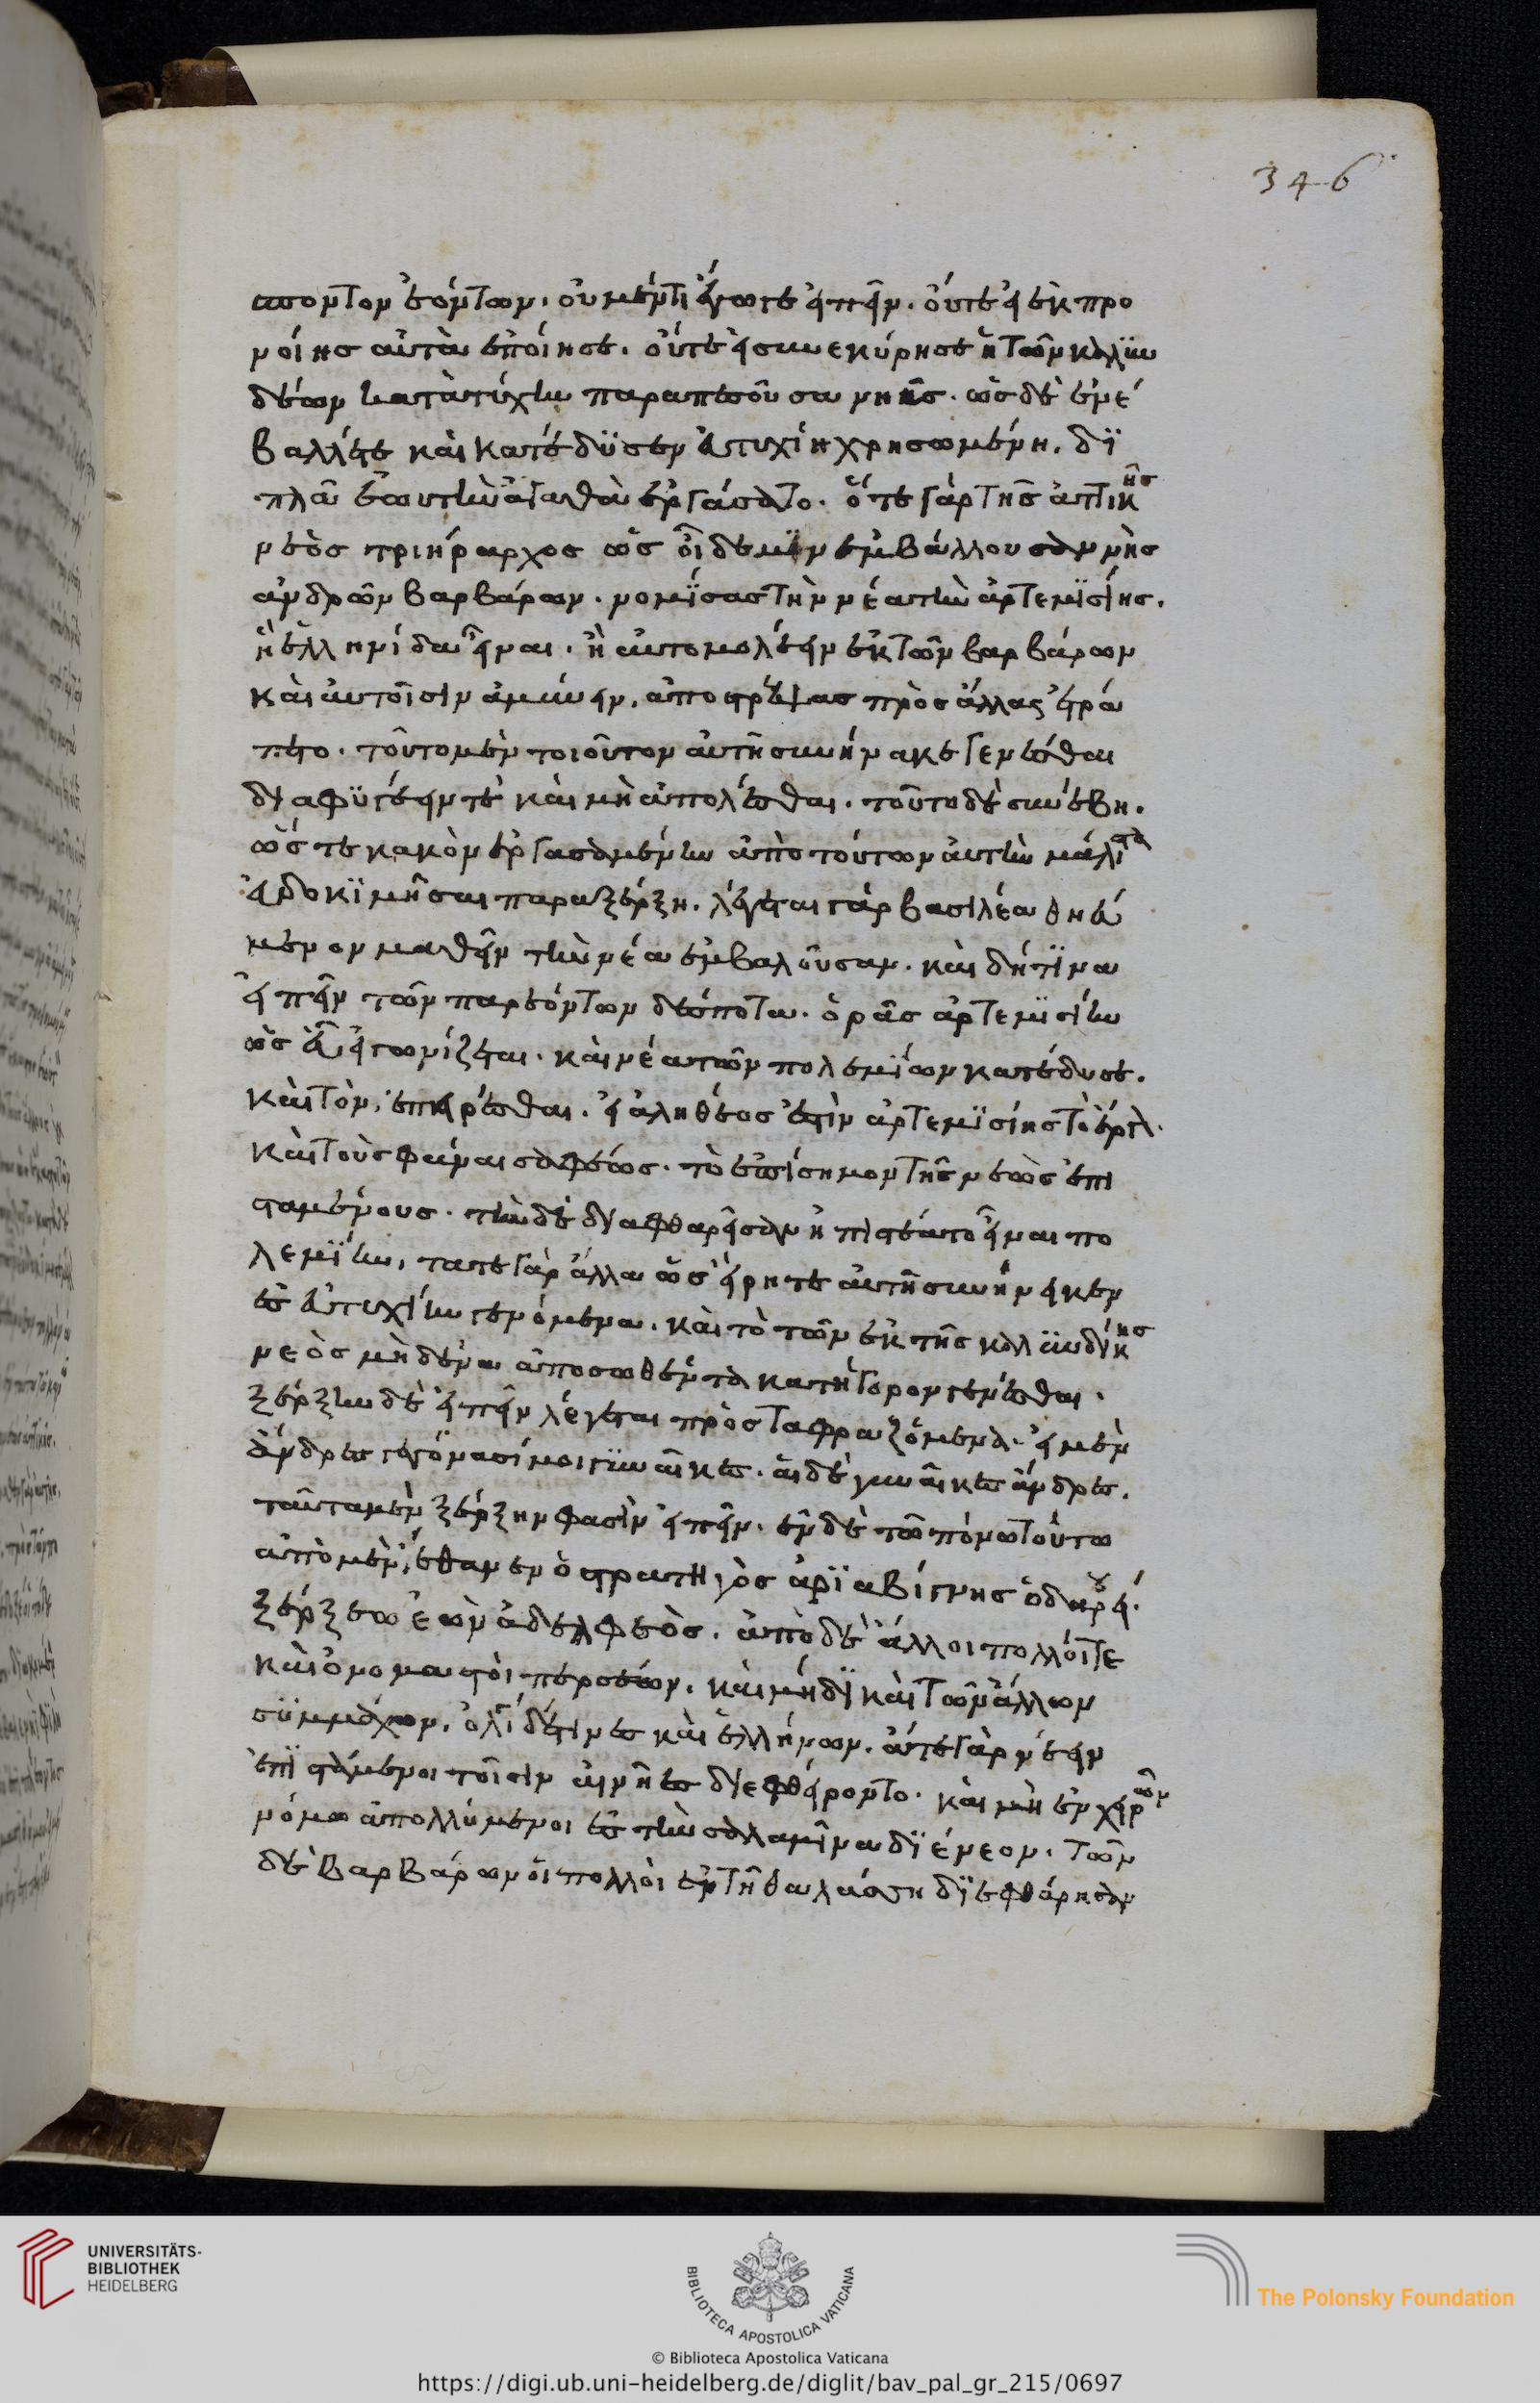 346
σποντον ἐόντων. οὐ μέντι ἔγωγε εἰπεῖν. οὔτε εἰ ἐκ προ
νοίης αὐτὰ ἐποίησε. οὔτε εἰ συνεκύρησε ἡ τῶν καλυν
δέων κατὰ τύχην παραπεσοῦσα νηῦς. ὡς δὲ ἐνέ
βαλλέ τε καὶ κατέδυσεν εὐτυχίη χρησαμένη. δι
πλᾶ ἑωυτὴν ἀγαθὰ ἐργάσατο. ὅ τε γὰρ τῆς ἀττικῆς
νεὸς τριήραρχος ὡς οἶδέ μιν ἐμβάλλουσαν νηὶ
ἀνδρῶν βαρβάρων. νομίσας τὴν νέα τὴν ἀρτεμισίης.
ἢ ἑλληνίδα εἶναι. ἢ αὐτομολέειν ἐκ τῶν βαρβάρων
καὶ αὐτοῖσιν ἀμύνειν, ἀποστρέψας πρὸς ἄλλας ἐτρά
πετο. τοῦτο μὲν τοιοῦτον αὐτῇ συνήνεικε γενέσθαι
διαφυγέειν τε καὶ μὴ ἀπολέσθαι. τοῦτο δὲ συνέβη.
ὥστε κακὸν ἐργασαμένην ἀπὸ τούτων αὐτὴν μάλιστα
εὐδοκιμῆσαι παρὰ ξέρξῃ. λέγεται γὰρ βασιλέα θηεύ
μενον μαθεῖν τὴν νέα ἐμβαλοῦσαν. καὶ δή τινα
εἰπεῖν τῶν παρεόντων δέσποτα. ὁρᾷς ἀρτεμισίην
ὡς εὖ ἀγωνίζεται. καὶ νέα τῶν πολεμίων κατέδυσε.
καὶ τὸν, ἐπειρέσθαι. εἰ ἀληθέως ἐστὶν ἀρτεμισίης τὸ ἔργον.
καὶ τοὺς φάναι σαφέως. τὸ ἐπίσημον τῆς νεὼς ἐπι
σταμένους. τὴν δὲ διαφθαρεῖσαν ἠπιστέατο εἶναι πο
λεμίην, τά τε γὰρ ἄλλα ὡς εἴρηται αὐτῇ συνήνεικεν
ἐς εὐτυχίην γενόμενα. καὶ τὸ τῶν ἐκ τῆς καλυνδικῆς
νεὸς μηδένα ἀποσωθέντα κατήγορον γενέσθαι.
ξέρξην δὲ εἰπεῖν λέγεται πρὸς τὰ φραζόμενα. οἱ μὲν
ἄνδρες γεγόνασί μοι γυναῖκες. αἱ δὲ γυναῖκες ἄνδρες.
ταῦτα μὲν ξέρξην φασὶν εἰπεῖν. ἐν δὲ τῷ πόνῳ τούτῳ
ἀπὸ μὲν, ἔθανεν ὁ στρατηγὸς ἀριαβίγνης ὁ δαρείου
ξέρξεω ἐὼν ἀδελφεός. ἀπὸ δὲ ἄλλοι πολλοί τε
καὶ ὀνομαστοὶ περσέων. καὶ μήδων καὶ τῶν ἄλλων
συμμάχων, ὀλίγοι δέ τινες καὶ ἑλλήνων. ἅτε γὰρ νέειν
ἐπιστάμενοι τοῖσιν αἱ νῆες διεφθείροντο. καὶ μὴ ἐν χειρῶν
νόμῳ ἀπολλύμενοι ἐς τὴν σαλαμῖνα διένεον. τῶν
δὲ βαρβάρων οἱ πολλοὶ ἐν τῇ θαλάσσῃ διεφθάρησαν
UNIVERSITÄTS-
BIBLIOTHEK
HEIDELBERG
BIBLIOTECA APOSTOLICA VATICANA
The Polonsky Foundation
© Biblioteca Apostolica Vaticana
https://digi.ub.uni-heidelberg.de/diglit/bav_pal_gr_215/0697